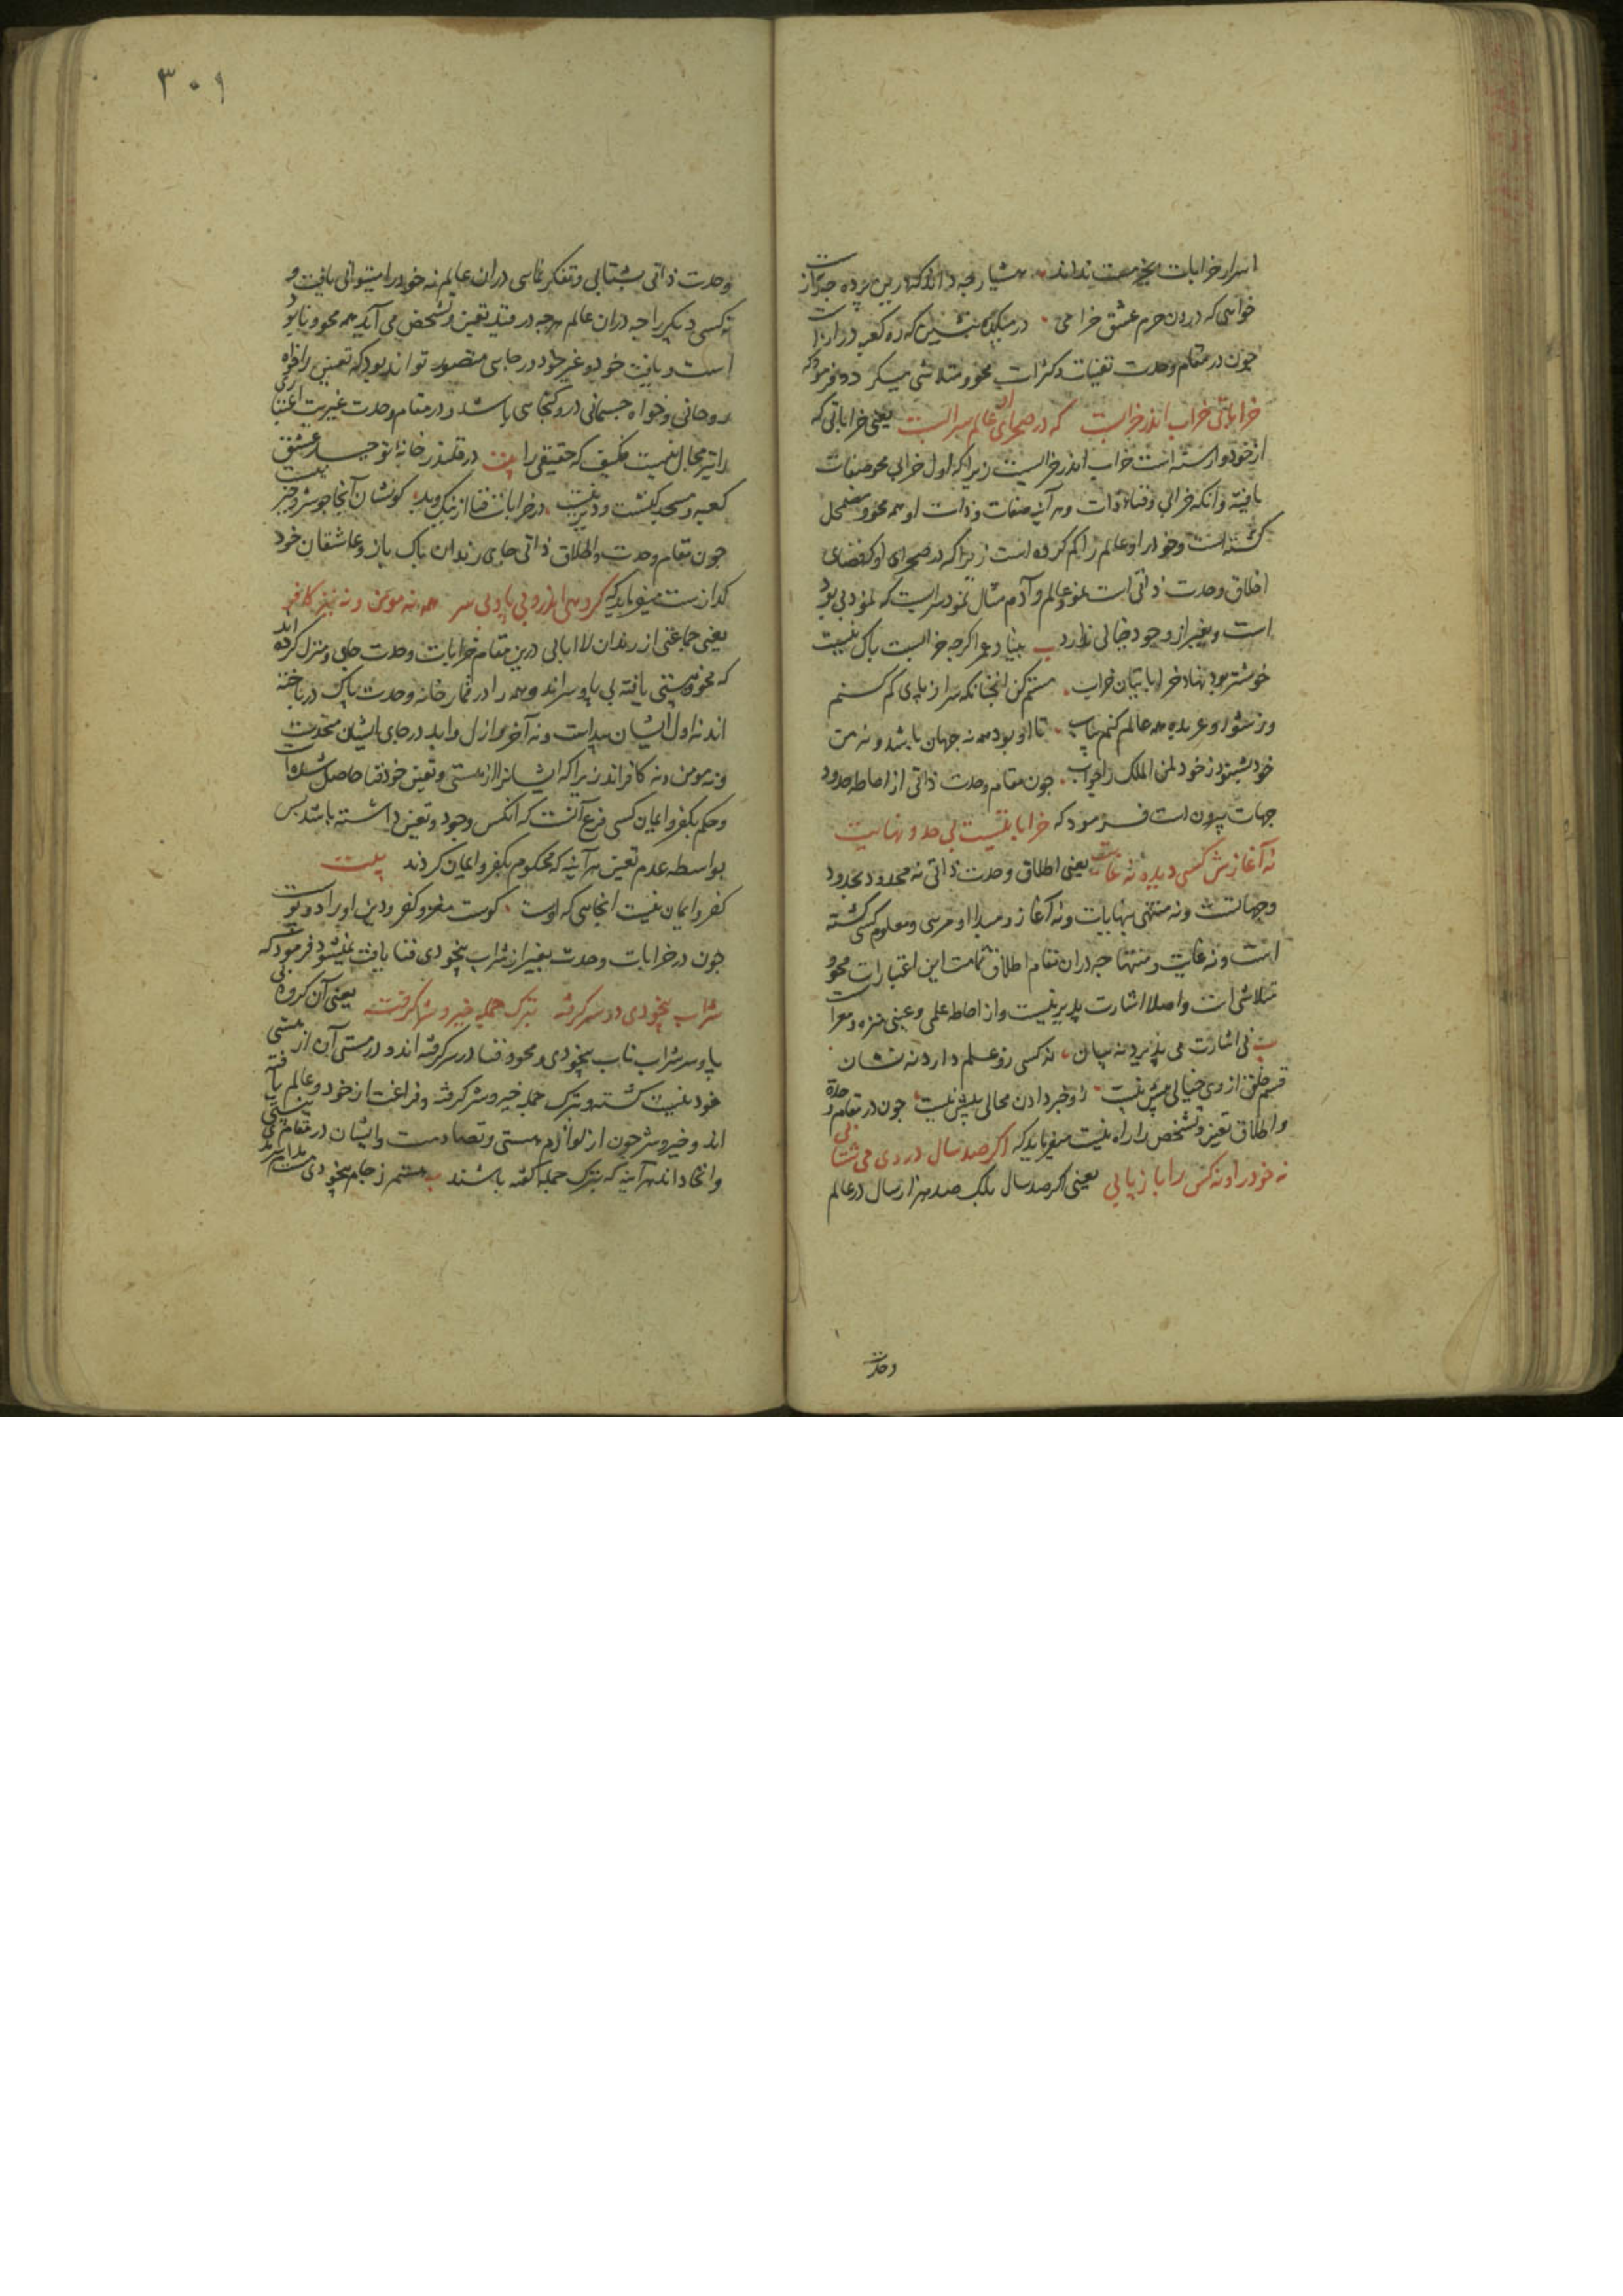 اسرار خرابات بجز مست نداند هشیار چه داند که درین پرده چه رازست
خواهی که درون حرم عشق خرامی در میکده بنشین که ره کعبه درازست
چون در مقام وحدت تعینات و کثرات محو و متلاشی میگردد فرمود که
خراباتی خراب اندر خرابست که در صحرای او عالم سرابست یعنی خراباتی که
از خود وارسته است خراب اندر خرابست زیرا که اول خرابی محو صفات
یافته وانکه خرابی و فناء ذات و هر آینه صفات و ذات او همه محو و مضمحل
گشته است و خود را و عالم را گم کرده است زیرا که در صحرای او که فضای
اطلاق وحدت ذاتی است نمود عالم و آدم مثال نمود سرابست که نمود بی بود
است و بغیر از وجود خیالی ندارد ب بنیاد عمر اگرچه خرابست باک نیست
خوشتر بود نهاد خراباتیان خراب مستم کن انچنانکه سر از پای گم کنم
وز شور و عربده همه عالم کنم خراب تا او بود همه نه جهان باشد و نه من
خود بشنود ز خود لمن الملک را جواب چون مقام وحدت ذاتی از احاطه حدود
جهات بیرون است فرمود که خراباتیست بی حد و نهایت
نه آغازش کسی دیده نه غایت یعنی اطلاق وحدت ذاتی نه محدود بحدود
و جهاتست و نه منتهی بنهایات و نه آغاز و مبدا او مرئی و معلوم کسی گشته
است و نه غایت و منتها چه دران مقام اطلاق تمامت این اعتبارات محو و
متلاشی است و اصلا اشارت پذیر نیست و از احاطه علمی و عینی منزه و معراست
ب نی اشارت می پذیرد نه بیان نه کسی زو علم دارد نه نشان
قسم خلق از وی خیالی بیش نیست زو خبر دادن محالی بیش نیست چون در مقام وحدة
و اطلاق تعین و تشخص را راه نیست میفرماید که اگر صد سال در وی می شتابی
نه خود را و نه کس را باز یابی یعنی اگر صد سال بلکه صد هزار سال در عالم
وحدت
٣٠٩
وحدت ذاتی بشتابی و تفکر نمائی دران عالم نه خود را میتوانی یافت و
نه کسی دیگر را چه دران عالم هرچه در قید تعین و تشخص می آید همه محو و نابود
است و یافت خود و غیر خود در جایی متصور تواند بود که تعین را خواه
روحانی و خواه جسمانی درو گنجایی باشد و در مقام وحدت غیریت اعتباری
را نیز مجال نیست فکیف که حقیقی را بیت در قلندر خانه توحید عشق
کعبه و مسجد کنشت و دیر نیست در خرابات فنا از نیک و بد گو نشان آنجا چو شر و خیر نیست
چون مقام وحدت و اطلاق ذاتی جای رندان پاک باز و عاشقان خود
گدازست میفرماید که گروهی اندرو بی پا و بی سر همه نه مومن و نه نیز کافر
یعنی جماعتی از رندان لاابالی درین مقام خرابات وحدت جای و منزل کرده اند
که محو هستی یافته بی پا و سر اند و همه را در قمار خانه وحدت پاک درباخته
اند نه اول ایشان پیداست و نه آخر و ازل و ابد در جای ایشان متحدست
و نه مومن و نه کافر اند زیرا که ایشانرا از هستی و تعین خود فنا حاصل شده است
و حکم بکفر و ایمان کسی فرع آنست که انکس وجود و تعین داشته باشد پس
بواسطه عدم تعین هر آینه که محکوم بکفر و ایمان نکردند بیت
کفر و ایمان نیست انجایی که اوست گوست مغز و کفر و دین او را دو پوست
چون در خرابات وحدت بغیر از شراب بیخودی فنا یافت نمیشود فرمود که
شراب بیخودی در سر گرفته بترک جمله خیر و شر گرفته یعنی آن گروه بی
پا و سر شراب ناب بیخودی و محو و فنا در سر گرفته اند و در مستی آن از هستی
خود نیست گشته و بترک جمله خیر و شر گرفته و فراغت از خود و عالم یافته
اند و خیر و شر چون از لوازم هستی و تضادست و ایشان در مقام نیستی
و اتحاد اند هر آینه که بترک جمله گفته باشند ب مستم ز جام بیخودی